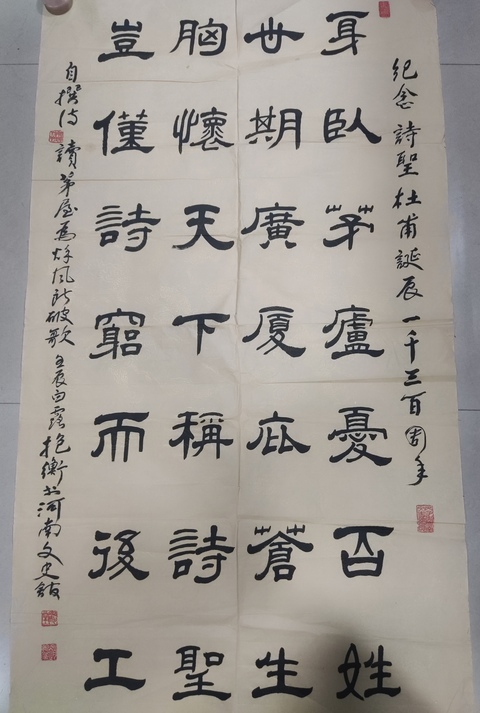 紀念 詩聖杜甫誕辰一千三百周年
身臥茅廬憂百姓
世期廣厦庇蒼生
胸懷天下稱詩聖
豈僅詩窮而後工
自撰诗 讀茅屋爲秋風所破歌 壬辰白露 衡书河南文史館